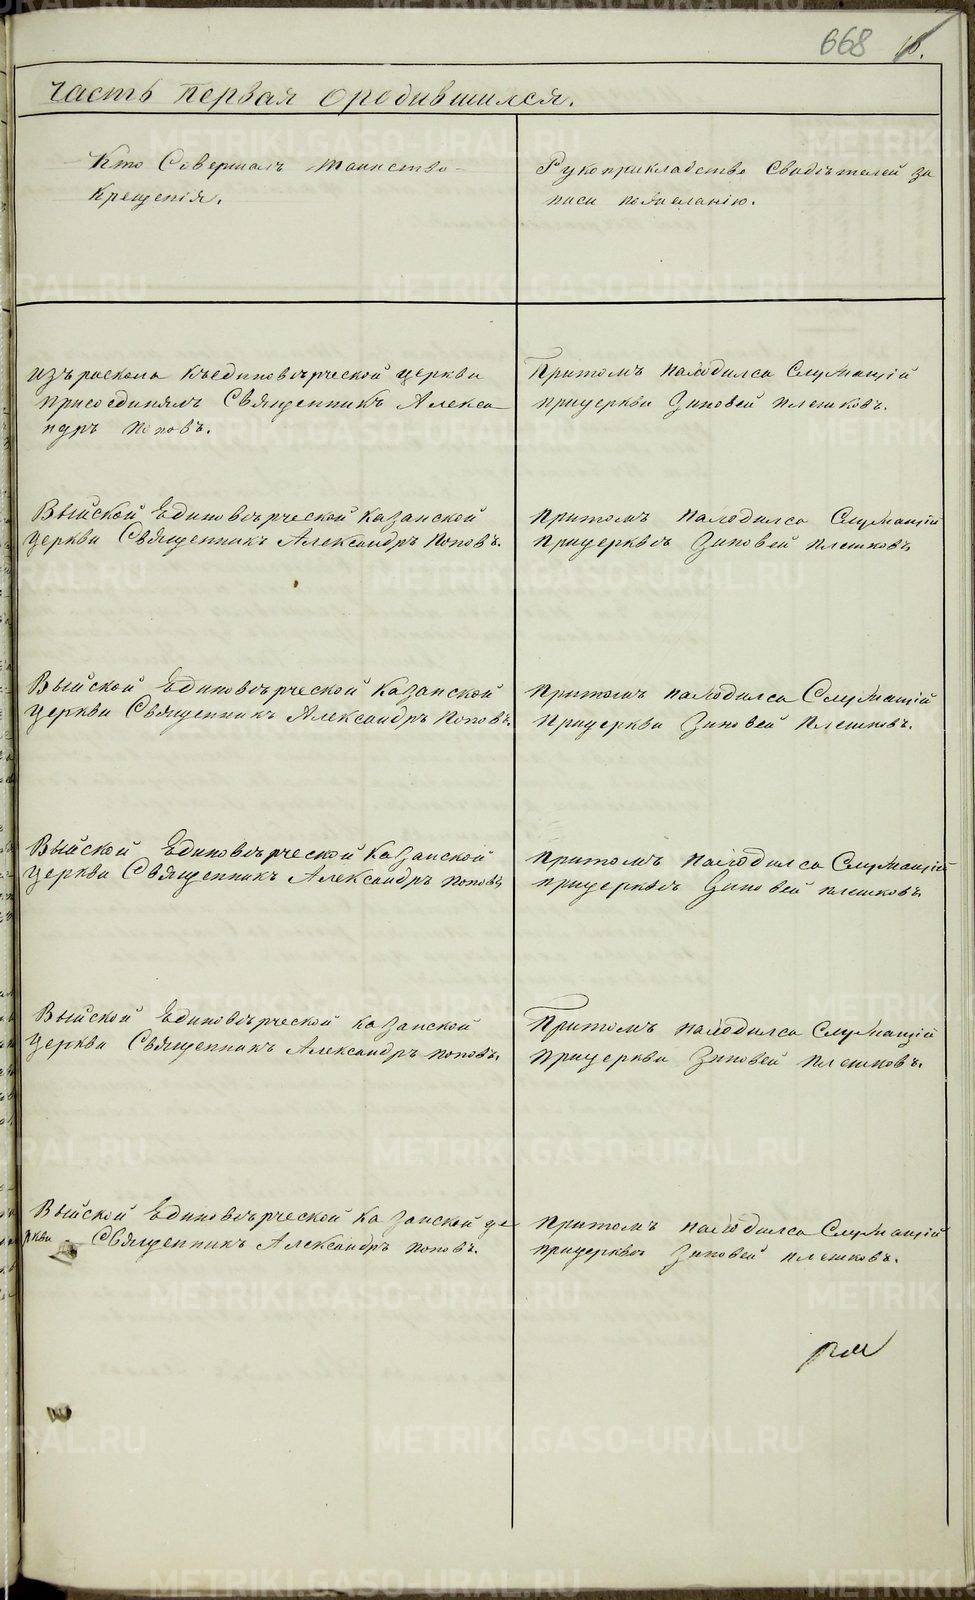 668
Часть Первая Ородившихся.
Кто Совершалъ таинство
Крещенія.
Рукоприкладство Свидѣтелей за
писи пожеланію.
изъ раскола къединовѣрческой церкви
присоединялъ Священникъ Алекса
ндръ Поповъ.
Притомъ находился Служащій
прицеркви Зиновей плешковъ.
Выйской Единовѣрческой Казанской
церкви Священникъ Александръ Поповъ.
притомъ находился Служащій
прицерквѣ Зиновей плешковъ
Выйской Единовѣрческой Казанской
церкви Священникъ Александръ Поповъ.
притомъ находился Служащій
прицеркви Зиновей Плешковъ.
Выйской Единовѣрческой Казанской
церкви Священникъ Александръ поповъ
притомъ находился Служащій
прицерквѣ Зиновей плешковъ.
Выйской Единовѣрческой казанской
церкви Священникъ Александръ поповъ.
Притомъ находился Служащій
прицеркви Зиновей плешковъ.
Выйской Единовѣрческой Казанской це
ркви Священникъ Александръ поповъ.
притомъ находился Служащій
прицерквѣ Зиновей плешковъ.
METRIKI.GASO-URAL.RU